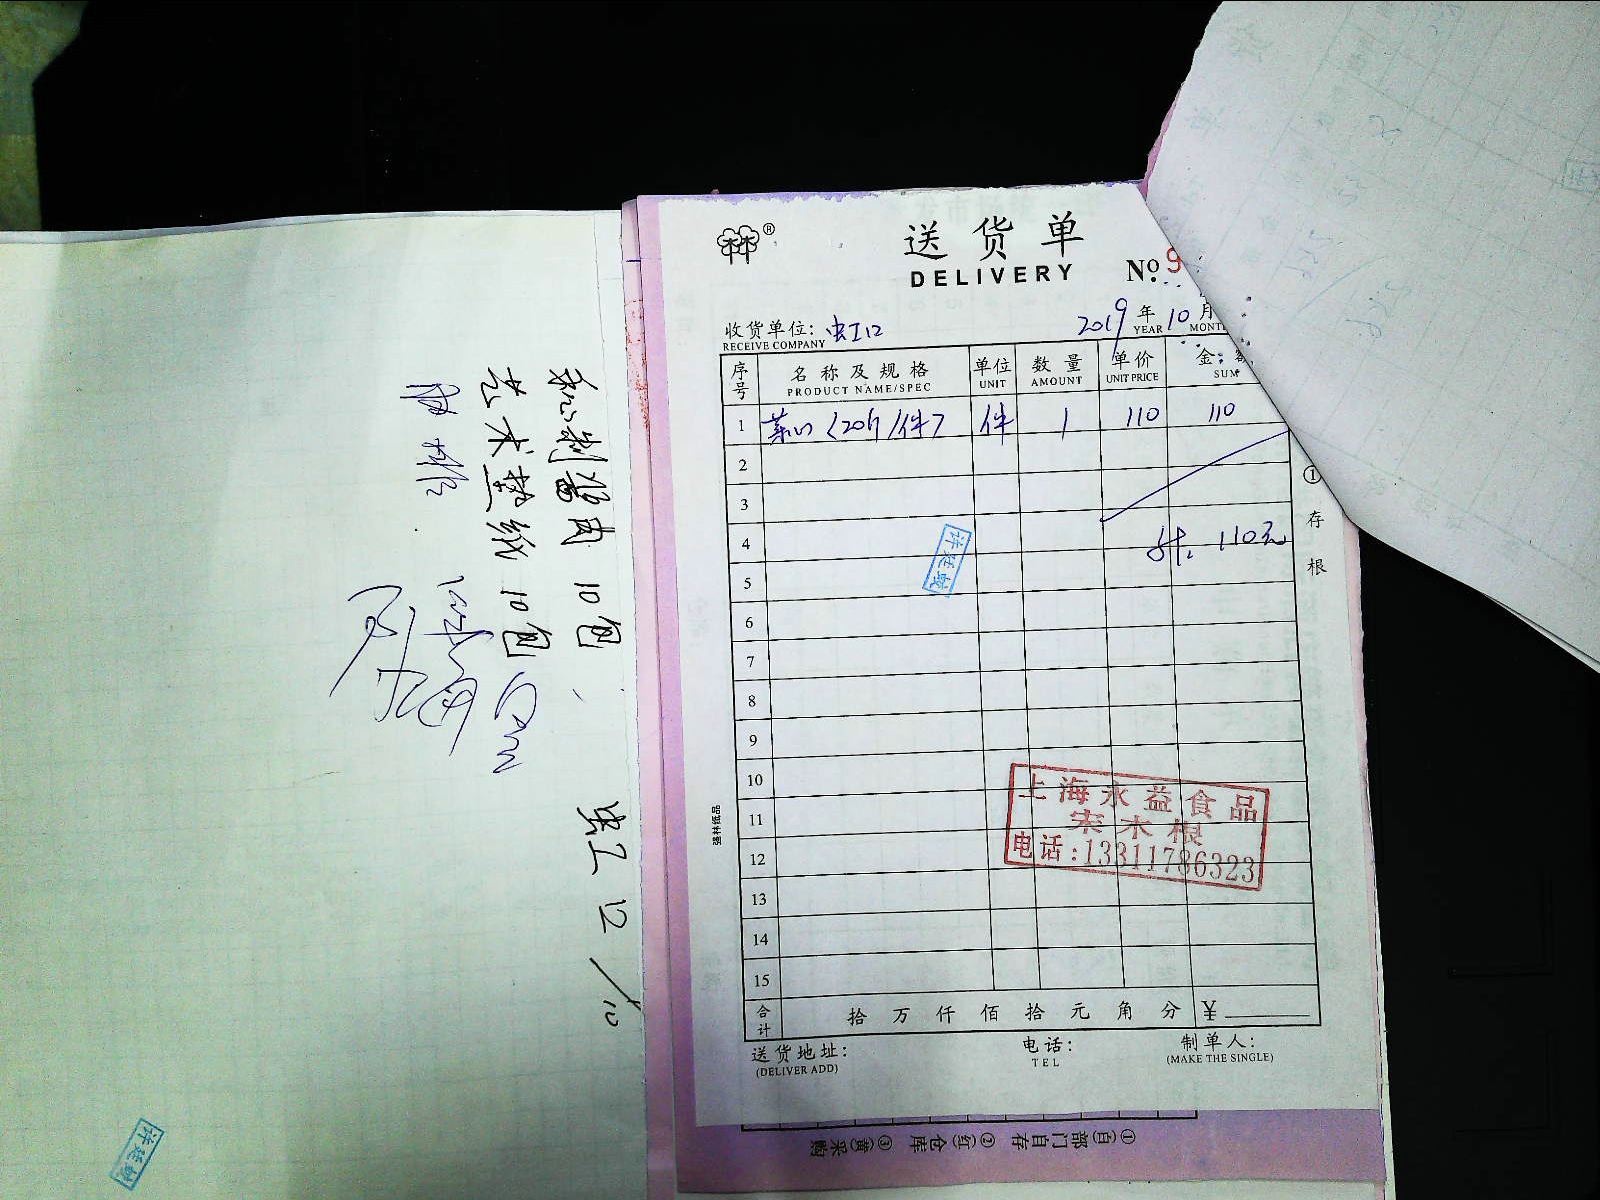 虹 12 /10
10包
艺术垫纸 10包
林®
送货单
DELIVERY
No. 9
收货单位: 虹12
RECEIVE COMPANY
2019 年 10 月
YEAR MONTH
序号 名称及规格 单位 数量 单价 金额
PRODUCT NAME/SPEC UNIT AMOUNT UNIT PRICE SUM
1 菜心 (20斤/件) 件 1 110 110
2
3
4
计: 110元
5
6
7
8
9
10
11
12
13
14
15
许廷敏
上海永益食品
宋木根
电话:13311786323
合计 拾 万 仟 佰 拾 元 角 分 ¥
送货地址: 电话: 制单人:
(DELIVER ADD) TEL (MAKE THE SINGLE)
①存根
强林纸品
①(白)部门自存 ②(红)仓库 ③(黄)采购
许廷敏